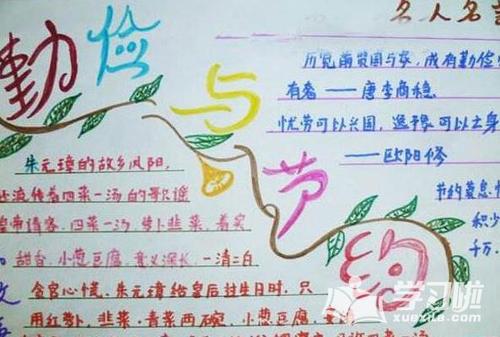 勤俭与节约
名人名
历览前贤国与家,成有勤俭
有奢——唐李商稳
忧劳可以兴国,逸豫可以亡身
——欧阳修
节约莫怠
积少
千万.
朱元璋的故乡凤阳,
流传着四菜一汤的歌谣
皇帝请客,四菜一汤,萝卜韭菜,着实
甜香,小葱豆腐,意义深长,一清二白
贪官心慌,朱元璋给皇后过生日时,只
用红萝卜,韭菜,青菜两碗,小葱豆腐
四菜一汤
学习啦
xuexila.com